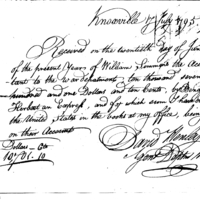 Knoxville 17 July 1795
Received on the twentieth day of June
of the present Year of William Simmons the Acc
tant to the war department, ten thousand seven
hundred and one Dollars and ten Cents, by
Herbert an Express, and for which sum I have
the United States in the books at my Office, being
on their Account
David Henley
Agent
Dollars Cts
10701.10